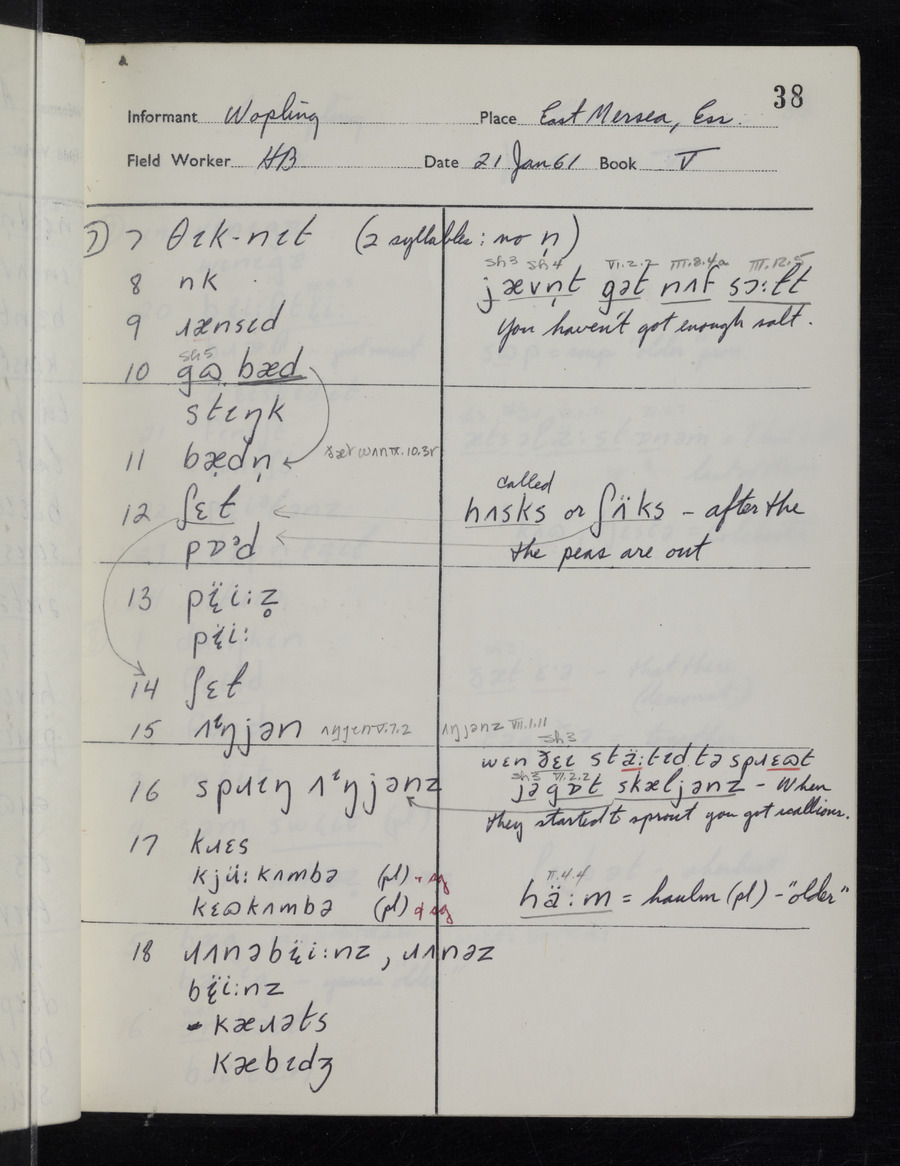 38
Informant Wopling Place East Mersea, Ess.
Field Worker HB Date 21 Jan 61 Book V
7 θɪk-nɪt (2 syllables: no n̩)
8 nk
sh3 sh4 VI.2.2 III.8.4a III.12.5
jævn̩t gət nʌf sɔ:ɫt
You haven't got enough salt.
9 ɹænsɪd
sh5
10 gɷ bæd
stɪŋk
11 bædn̩
called
12 ʃɛɫ
pɒᵊd
hʌsks or ʃʌ̈ks – after the
the peas are out
13 pɪ̈i:z̥
pɪ̈i:
14 ʃɛɫ
15 ʌⁱŋjən ʌŋjɪn V.7.2 ʌŋjənz VII.1.11
sh3
wɛn ðɛɪ stä:tɪd tə spɹɛɷt
16 spɹɪŋ ʌⁱŋjənz
sh3 VI.2.2
jə gɒt skæljənz – When
they started t sprout you got scallions.
17 kɹɛs
kjü: kʌmbə (pl) + sg
kɛɷkʌmbə (pl) & sg
II.4.4
hä:m = haulm (pl) – "older"
18 ɹʌnəbɪ̈i:nz, ɹʌnəz
bɪ̈i:nz
kæɹəts
kæbɪdʒ